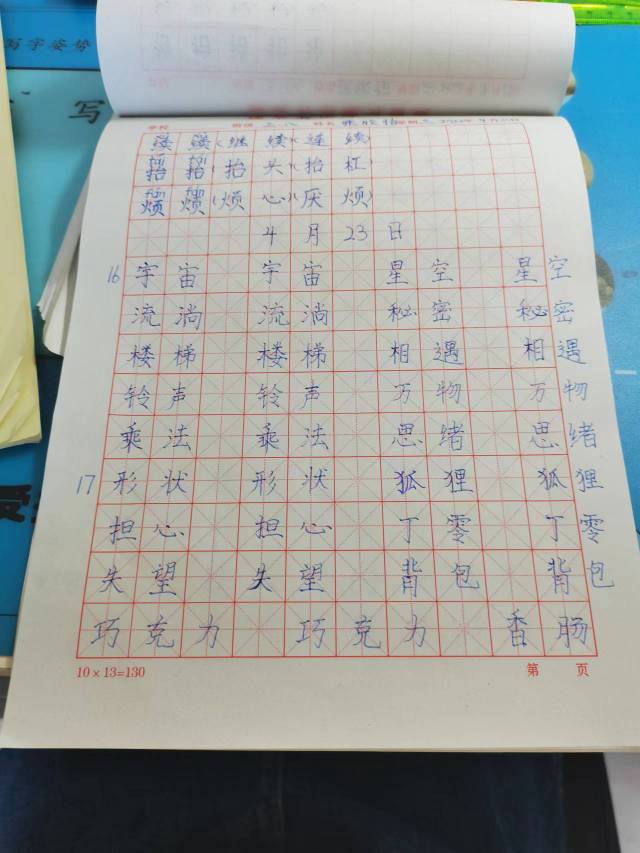 写字姿势
写
学校 班级 三、八 姓名
续 续(继 续)(连 续)
抬 抬(抬 头)(抬 杠)
烦 烦(烦 心)(厌 烦)
4 月 23 日
16 宇 宙 宇 宙 星 空 星 空
流 淌 流 淌 秘 密 秘 密
楼 梯 楼 梯 相 遇 相 遇
铃 声 铃 声 万 物 万 物
乘 法 乘 法 思 绪 思 绪
17 形 状 形 状 狐 狸 狐 狸
担 心 担 心 丁 零 丁 零
失 望 失 望 背 包 背 包
巧 克 力 巧 克 力 香 肠
10×13=130 第 页